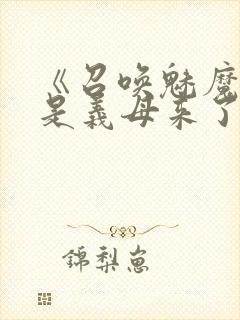 《召唤魅魔
是义母来了
锦梨崽